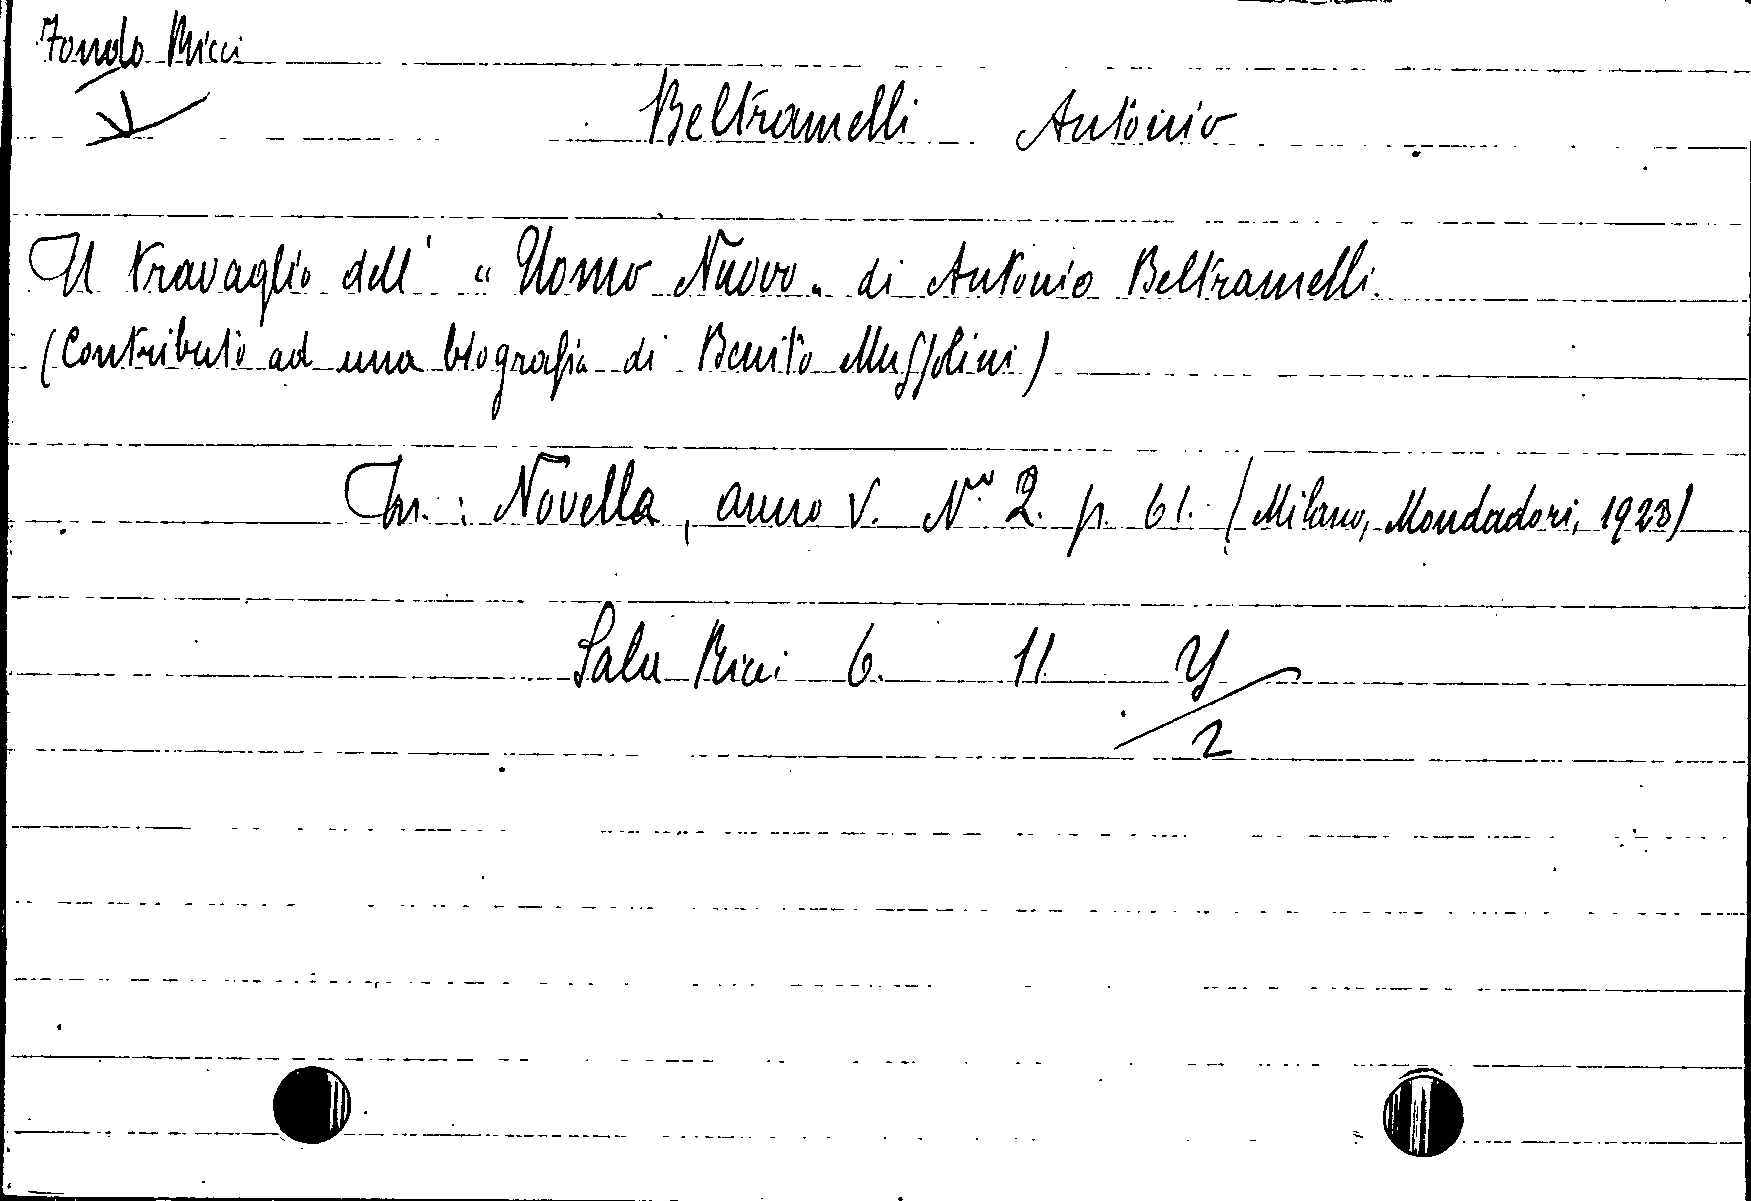 Fondo Ricci
Beltramelli Antonio
Il travaglio dell' "Uomo Nuovo" di Antonio Beltramelli.
(Contributo ad una biografia di Benito Mussolini)
In: Novella, anno V. Nº 2. p. 61. (Milano, Mondadori, 1923)
Sala Ricci 6. 11 Y/2